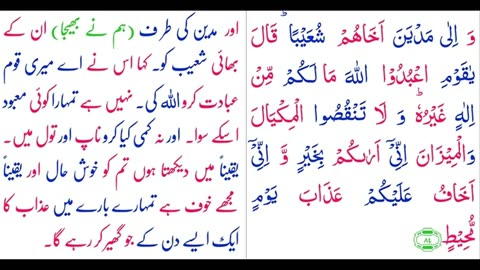 وَ اِلٰى مَدْيَنَ اَخَاهُمْ شُعَيْبًا ؕ قَالَ
يٰقَوْمِ اعْبُدُوا اللّٰهَ مَا لَكُمْ مِّنْ
اِلٰهٍ غَيْرُهٗ ؕ وَ لَا تَنْقُصُوا الْمِكْيَالَ
وَالْمِيْزَانَ اِنِّيْۤ اَرٰىكُمْ بِخَيْرٍ وَّ اِنِّيْۤ
اَخَافُ عَلَيْكُمْ عَذَابَ يَوْمٍ
مُّحِيْطٍ ۸۴
اور مدین کی طرف (ہم نے بھیجا) ان کے
بھائی شعیب کو۔ کہا اس نے اے میری قوم
عبادت کرو اللہ کی۔ نہیں ہے تمہارا کوئی معبود
اسکے سوا۔ اور نہ کمی کیا کرو ناپ اور تول میں۔
یقیناً میں دیکھتا ہوں تم کو خوش حال اور یقیناً
مجھے خوف ہے تمہارے بارے میں عذاب کا
ایک ایسے دن کے جو گھیر کر رہے گا۔